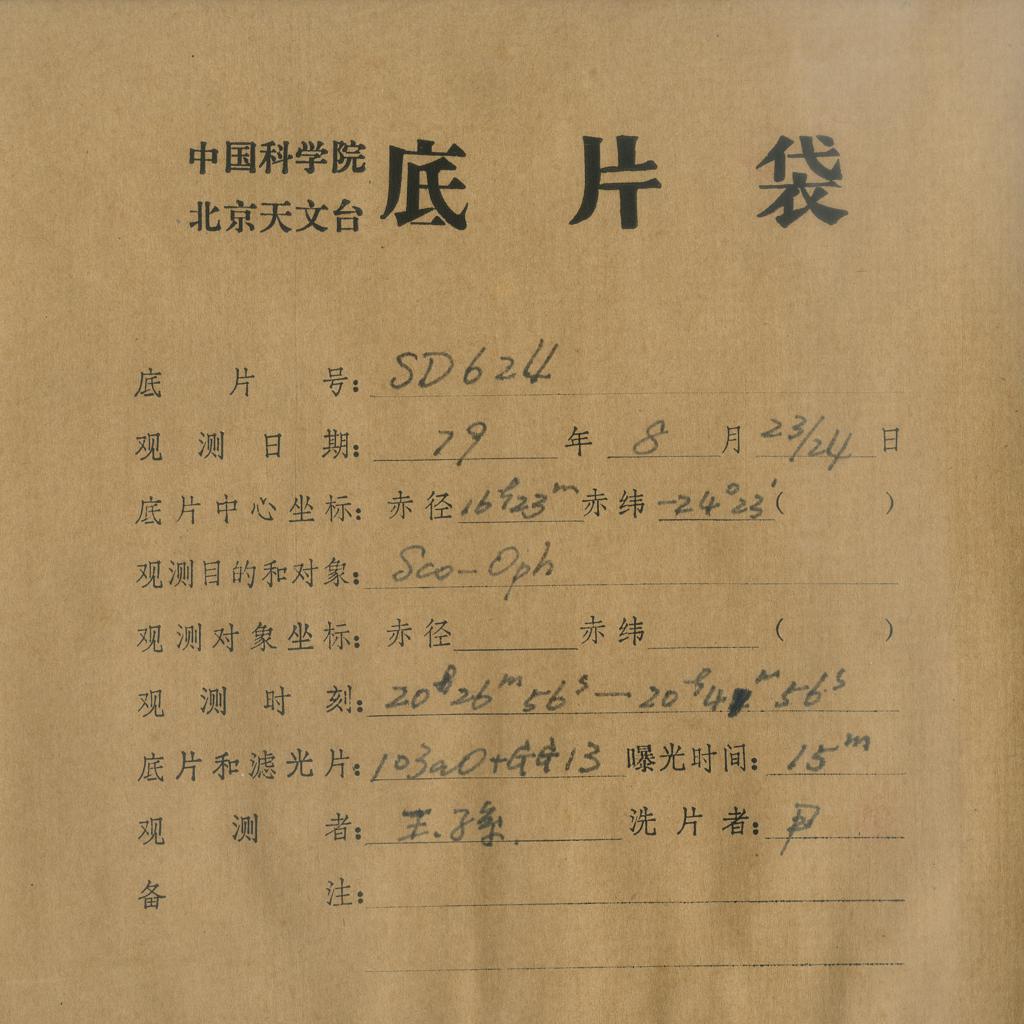 中国科学院
北京天文台 底片袋
底片号：SD624
观测日期：79年8月23/24日
底片中心坐标：赤径16h23m赤纬-24°23′( )
观测目的和对象：Sco-Oph
观测对象坐标：赤径 赤纬 ( )
观测时刻：20h26m56s—20h41m56s
底片和滤光片：103aO+GG13 曝光时间：15m
观测者：王.孙. 洗片者：
备注：